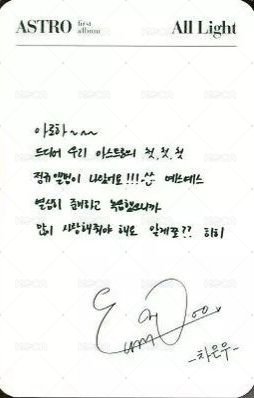 ASTRO first album All Light
아로하~~
드디어 우리 아스트로의 첫, 첫, 첫
정규앨범이 나왔어요!!! ^^ 예스예스
열심히 준비하고 녹음했으니까
많이 사랑해줘야 해요 알게쬬?? 히히
Eun Woo
-차은우-